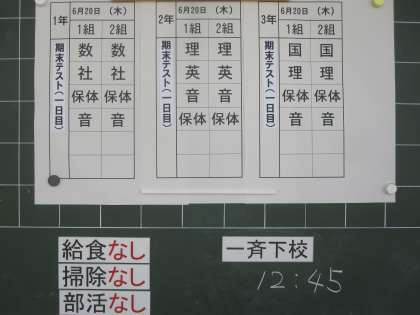 1年 6月20日 (木)
1組 2組
期末テスト(一日目)
数 数
社 社
保体 保体
音 音
2年 6月20日 (木)
1組 2組
期末テスト(一日目)
理 理
英 英
音 音
保体 保体
3年 6月20日 (木)
1組 2組
期末テスト(一日目)
国 国
理 理
保体 保体
音 音
給食なし
掃除なし
部活なし
一斉下校
12:45